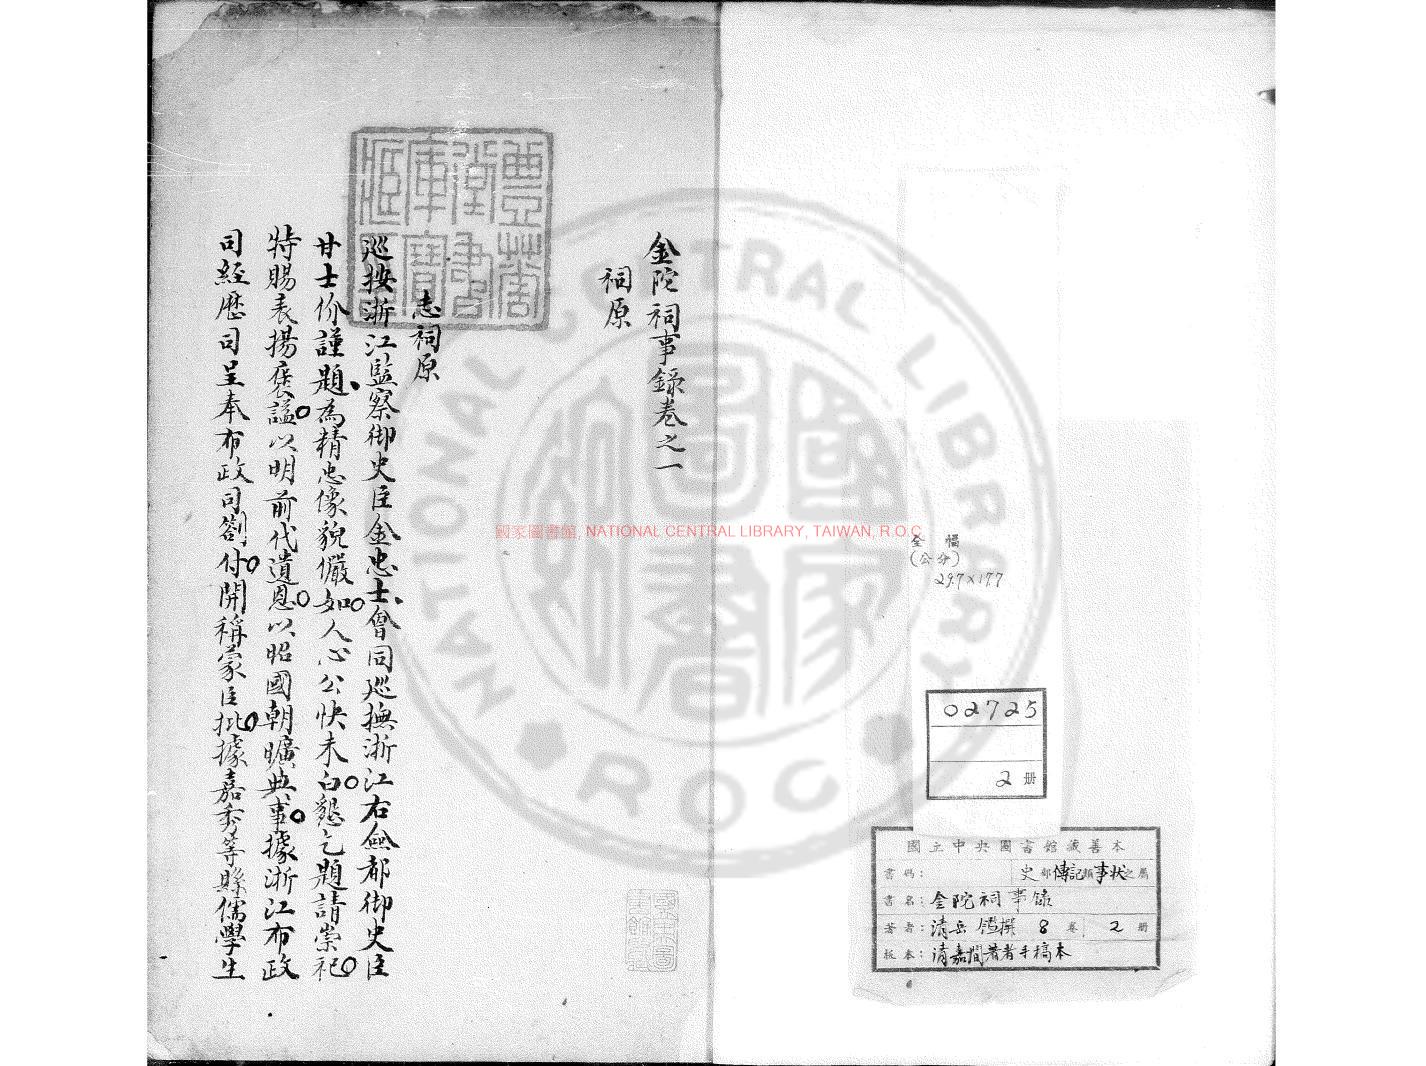 金陀祠事錄卷之一
祠原
志祠原
巡按浙江監察御史臣金忠士會同巡撫浙江右僉都御史臣
甘士价謹題為精忠像貌儼如人心公快未白懇乞題請崇祀
特賜表揚褒謚以明前代遺恩以昭國朝曠典事據浙江布政
司經歷司呈奉布政司劄付開稱蒙臣批據嘉秀等縣儒學生
豐華堂書庫寶藏印
國家圖書館, NATIONAL CENTRAL LIBRARY, TAIWAN, R.O.C
NATIONAL CENTRAL LIBRARY
ROC
國家圖書
全幅
(公分)
29.7×17.7
02725
2 册
國立中央圖書館藏善本
書碼：史部傳記類事狀之屬
書名：金陀祠事錄
著者：清岳鑑撰 8 卷 2 册
版本：清嘉間著者手稿本